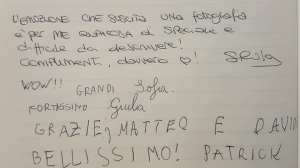 L'EMOZIONE CHE SUSCITA UNA FOTOGRAFIA
È PER ME QUALCOSA DI SPECIALE E
DIFFICILE DA DESCRIVERE!
COMPLIMENTI, DAVVERO ♡!
WOW!!
GRANDI Sofia
FORTISSIMO Giulia
GRAZIE, MATTEO E DAVID
BELLISSIMO! PATRICK